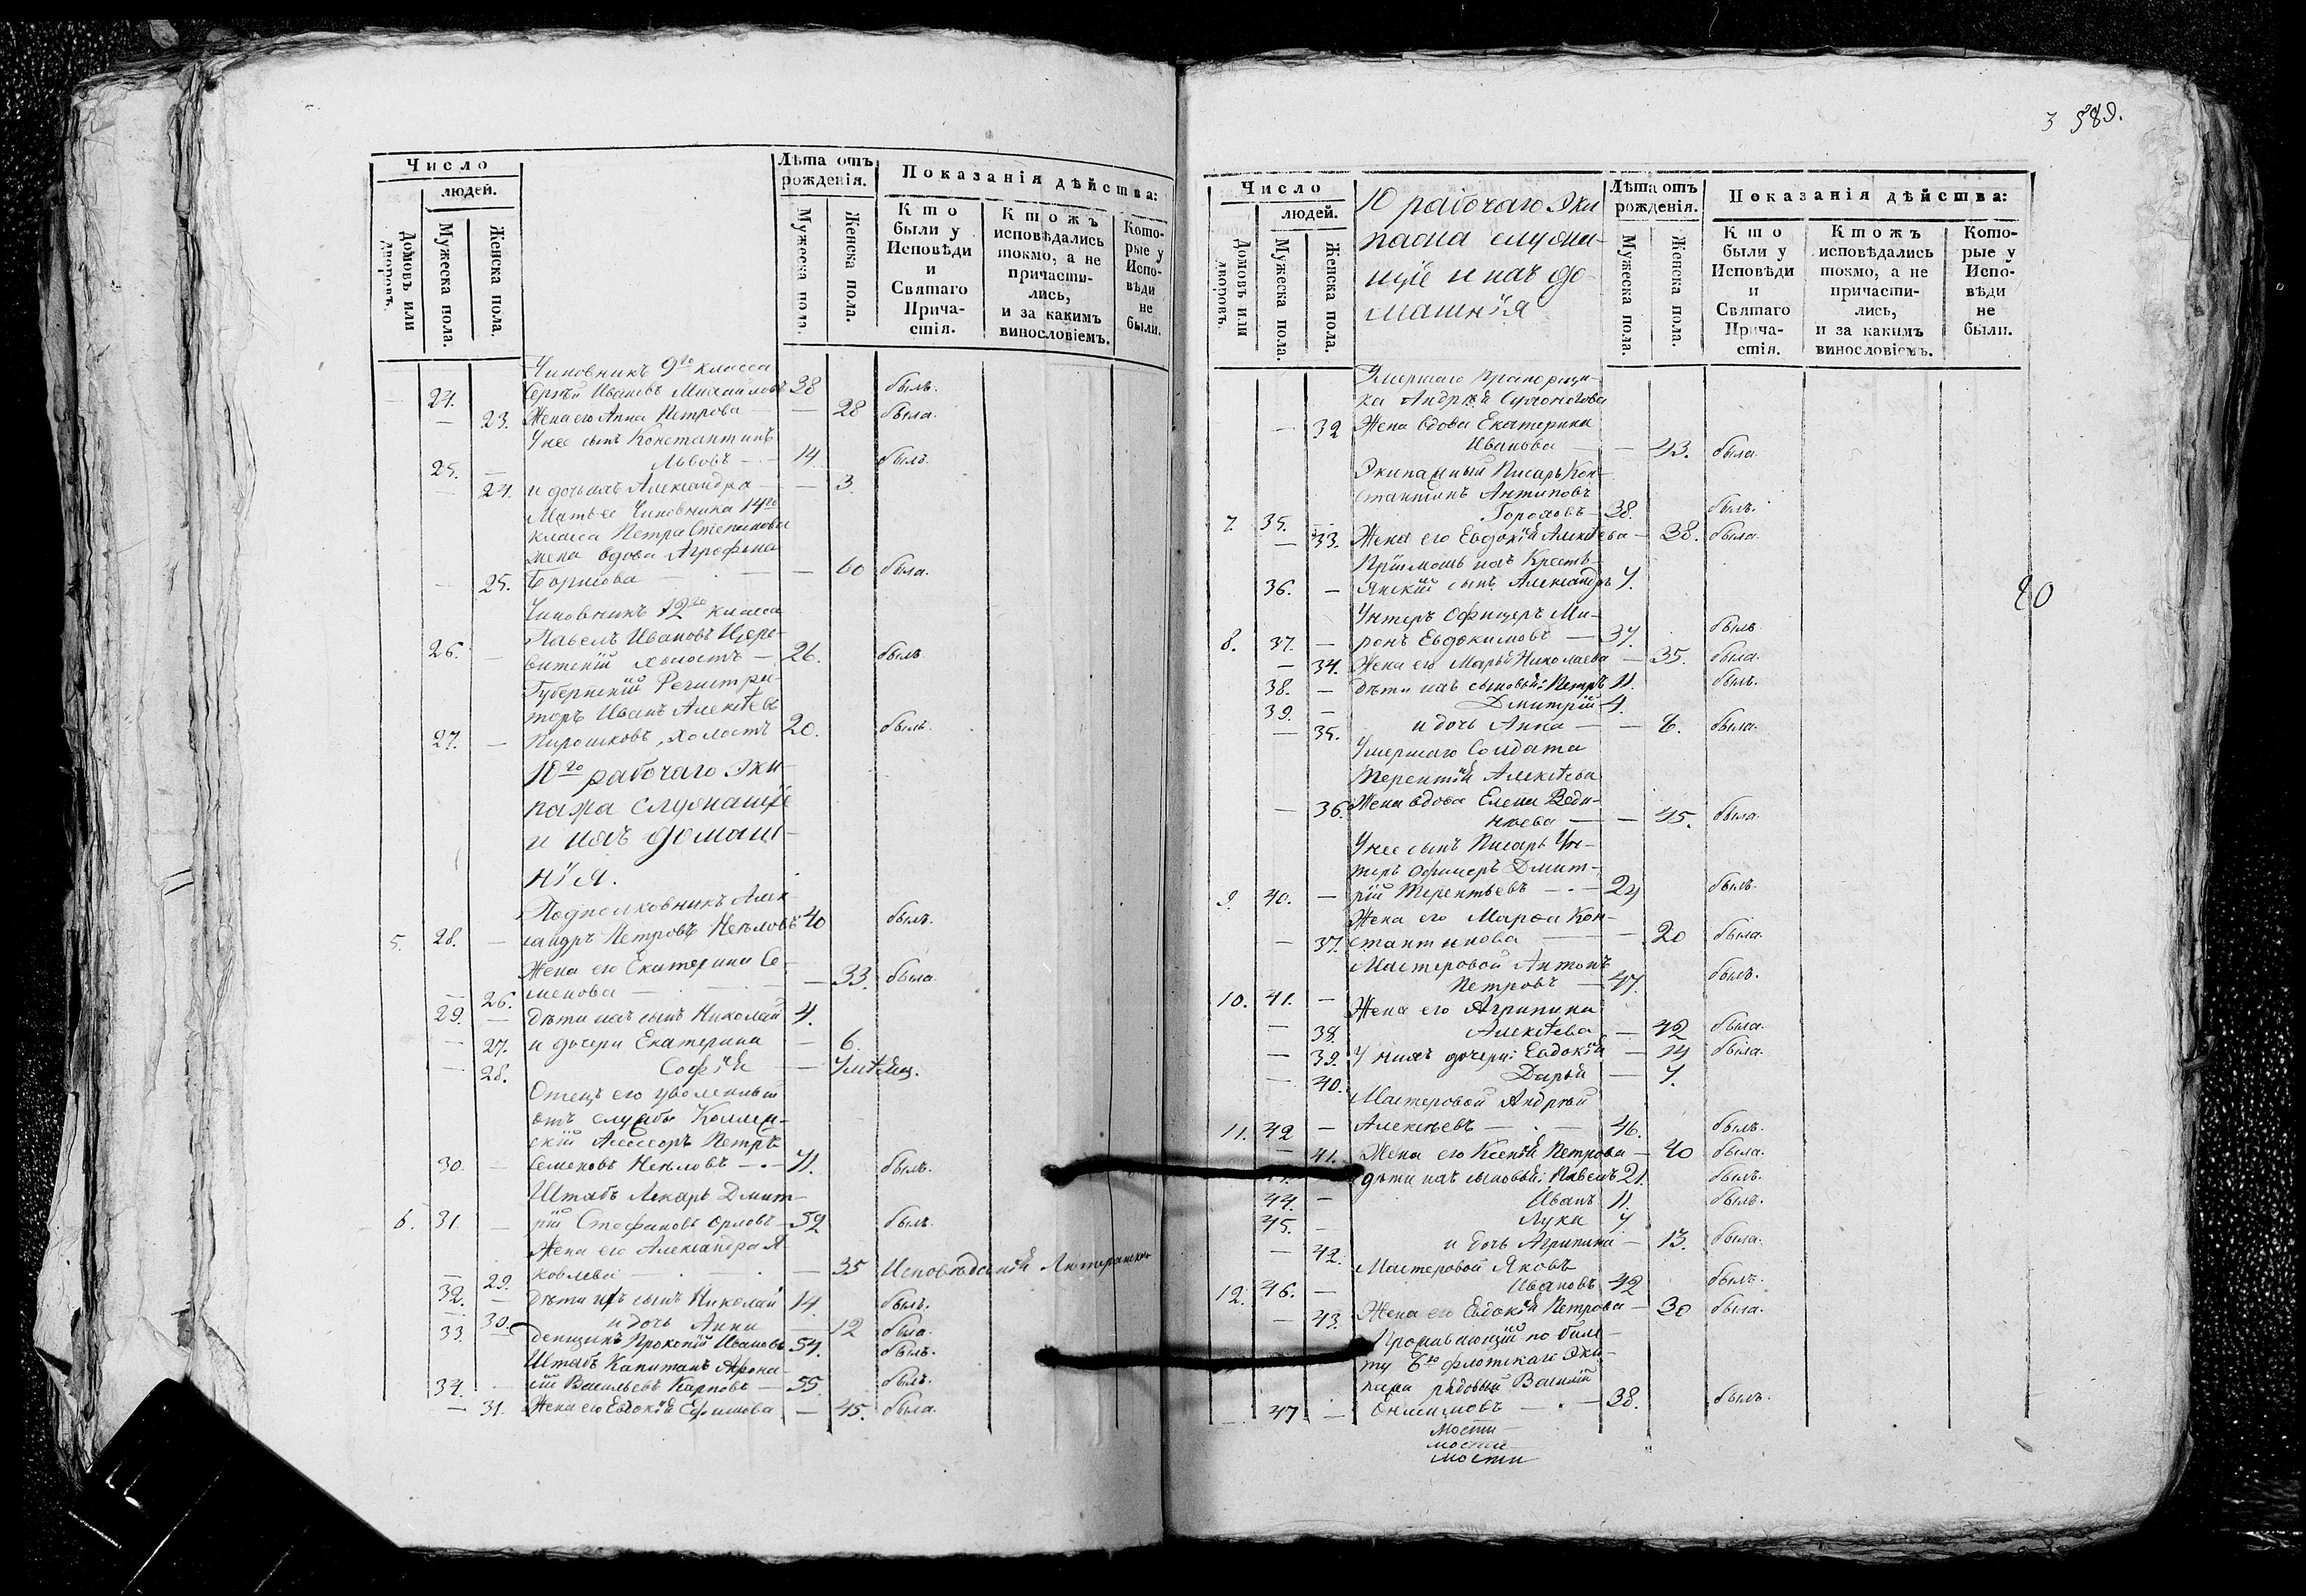 Число
людей.
Домовъ или дворовъ.
Мужеска пола.
Женска пола.
Лѣта отъ рожденія.
Мужеска пола.
Женска пола.
Показанія дѣйства:
Кто были у Исповѣди и Святаго Причастія.
Ктожъ исповѣдались токмо, а не причастились, и за какимъ винословіемъ.
Которые у Исповѣди не были.
Чиновникъ 9го класса
24. Сергѣй Ивановъ Михайловъ 38 былъ.
— 23. Жена его Анна Петрова — — 28 была.
У нее сынъ Константинъ
25. — Львовъ — 14. былъ.
— 24. и дочь ихъ Александра — — 3.
Мать ее Чиновника 14го
класса Петра Степанова
жена вдова Агрофена
— 25. Борисова — — 60 была.
Чиновникъ 12го класса
Павелъ Ивановъ Цере-
26. — витскій холостъ — 26. былъ.
Губернскій Регистра-
торъ Иванъ Алексѣевъ
27. — Пирошковъ, холостъ 20. былъ.
10го рабочаго Эки-
пажа служащіе
и ихъ домаш-
нія.
Подполковникъ Алек-
5. 28. — сандръ Петровъ Нееловъ 40 былъ.
Жена его Екатерина Се-
— 26. менова — — 33. была
29. — Дѣти ихъ сынъ Николай 4.
— 27. и дочери Екатерина — 6.
— 28. Софія — —
Отецъ его уволенный
отъ службы Коллеж-
скій Ассесоръ Петръ
30. — Семеновъ Нееловъ — 71. былъ.
Штабъ Лекарь Дмит-
6. 31. — рій Стефановъ Орловъ — 52 былъ.
Жена его Александра Я-
— 29. ковлева — — 35 Исповѣданія Лютеранскаго
32. — Дѣти ихъ сынъ Николай 14. былъ.
— 30. и дочь Анна — 12 была.
33. — Денщикъ Прокопій Ивановъ 54. былъ.
Штабъ Капитанъ Афона-
34. — сій Васильевъ Карповъ — 55. былъ.
— 31. Жена его Евдокія Ефимова — 45. была.
3 389.
Число
людей.
Домовъ или дворовъ.
Мужеска пола.
Женска пола.
10 рабочаго Эки
пажа служа-
щіе и ихъ до-
машнія
Лѣта отъ рожденія.
Мужеска пола.
Женска пола.
Показанія дѣйства:
Кто были у Исповѣди и Святаго Причастія.
Ктожъ исповѣдались токмо, а не причастились, и за какимъ винословіемъ.
Которые у Исповѣди не были.
Умершаго Прапорщи-
ка Андрея
— 32 Жена вдова Екатерина
Иванова — — 43. была
Экипажный Писарь Кон-
стантинъ Антиповъ
7. 35. — Гороховъ — 38. былъ.
— 33. Жена его Евдокія Алексѣева — 38. была.
Пріимошъ ихъ Кресть-
36. — янскій сынъ Александръ 7.
Унтеръ Офицеръ Ми-
8. 37. — ронъ Евдокимовъ — 37. былъ
— 34. Жена его Марья Николаева — 35. была.
38. — Дѣти ихъ сыновья: Петръ 11. былъ.
39. — Дмитрій 4.
— 35. и дочь Анна — — 8. была.
Умершаго Солдата
Терентія Алексѣева
— 36. Жена вдова Елена Веди-
нѣева — — 45. была.
У нее сынъ Писарь Ун-
теръ Офицеръ Дмит-
9. 40. — рій Терентьевъ — 24 былъ.
Жена его Марфа Кон-
— 37. стантинова — — 20 была.
Мастеровой Антонъ
10. 41. — Петровъ — 47. былъ.
Жена его Агрипина
— 38. Алексѣева — 42 была.
— 39. У нихъ дочери: Евдокія — 14 была.
— 40. Дарья — 7.
Мастеровой Андрей
11. 42 — Алексѣевъ — — 46. былъ.
— 41. Жена его Ксенія Петрова — 40 была.
Дѣти ихъ сыновья: Павелъ 21. былъ.
44. — Иванъ 11. былъ.
45. — Лука 7.
— 42. и дочь Агрипина — 13. была.
Мастеровой Яковъ
12. 46. — Ивановъ 42 былъ.
— 43. Жена его Евдокія Петрова — 30 была.
Проживающій по биле-
ту 6го флотскаго Эки-
пажа рядовый Василій
47. — Онисимовъ — — 38. былъ.
мости
мости
мости
20